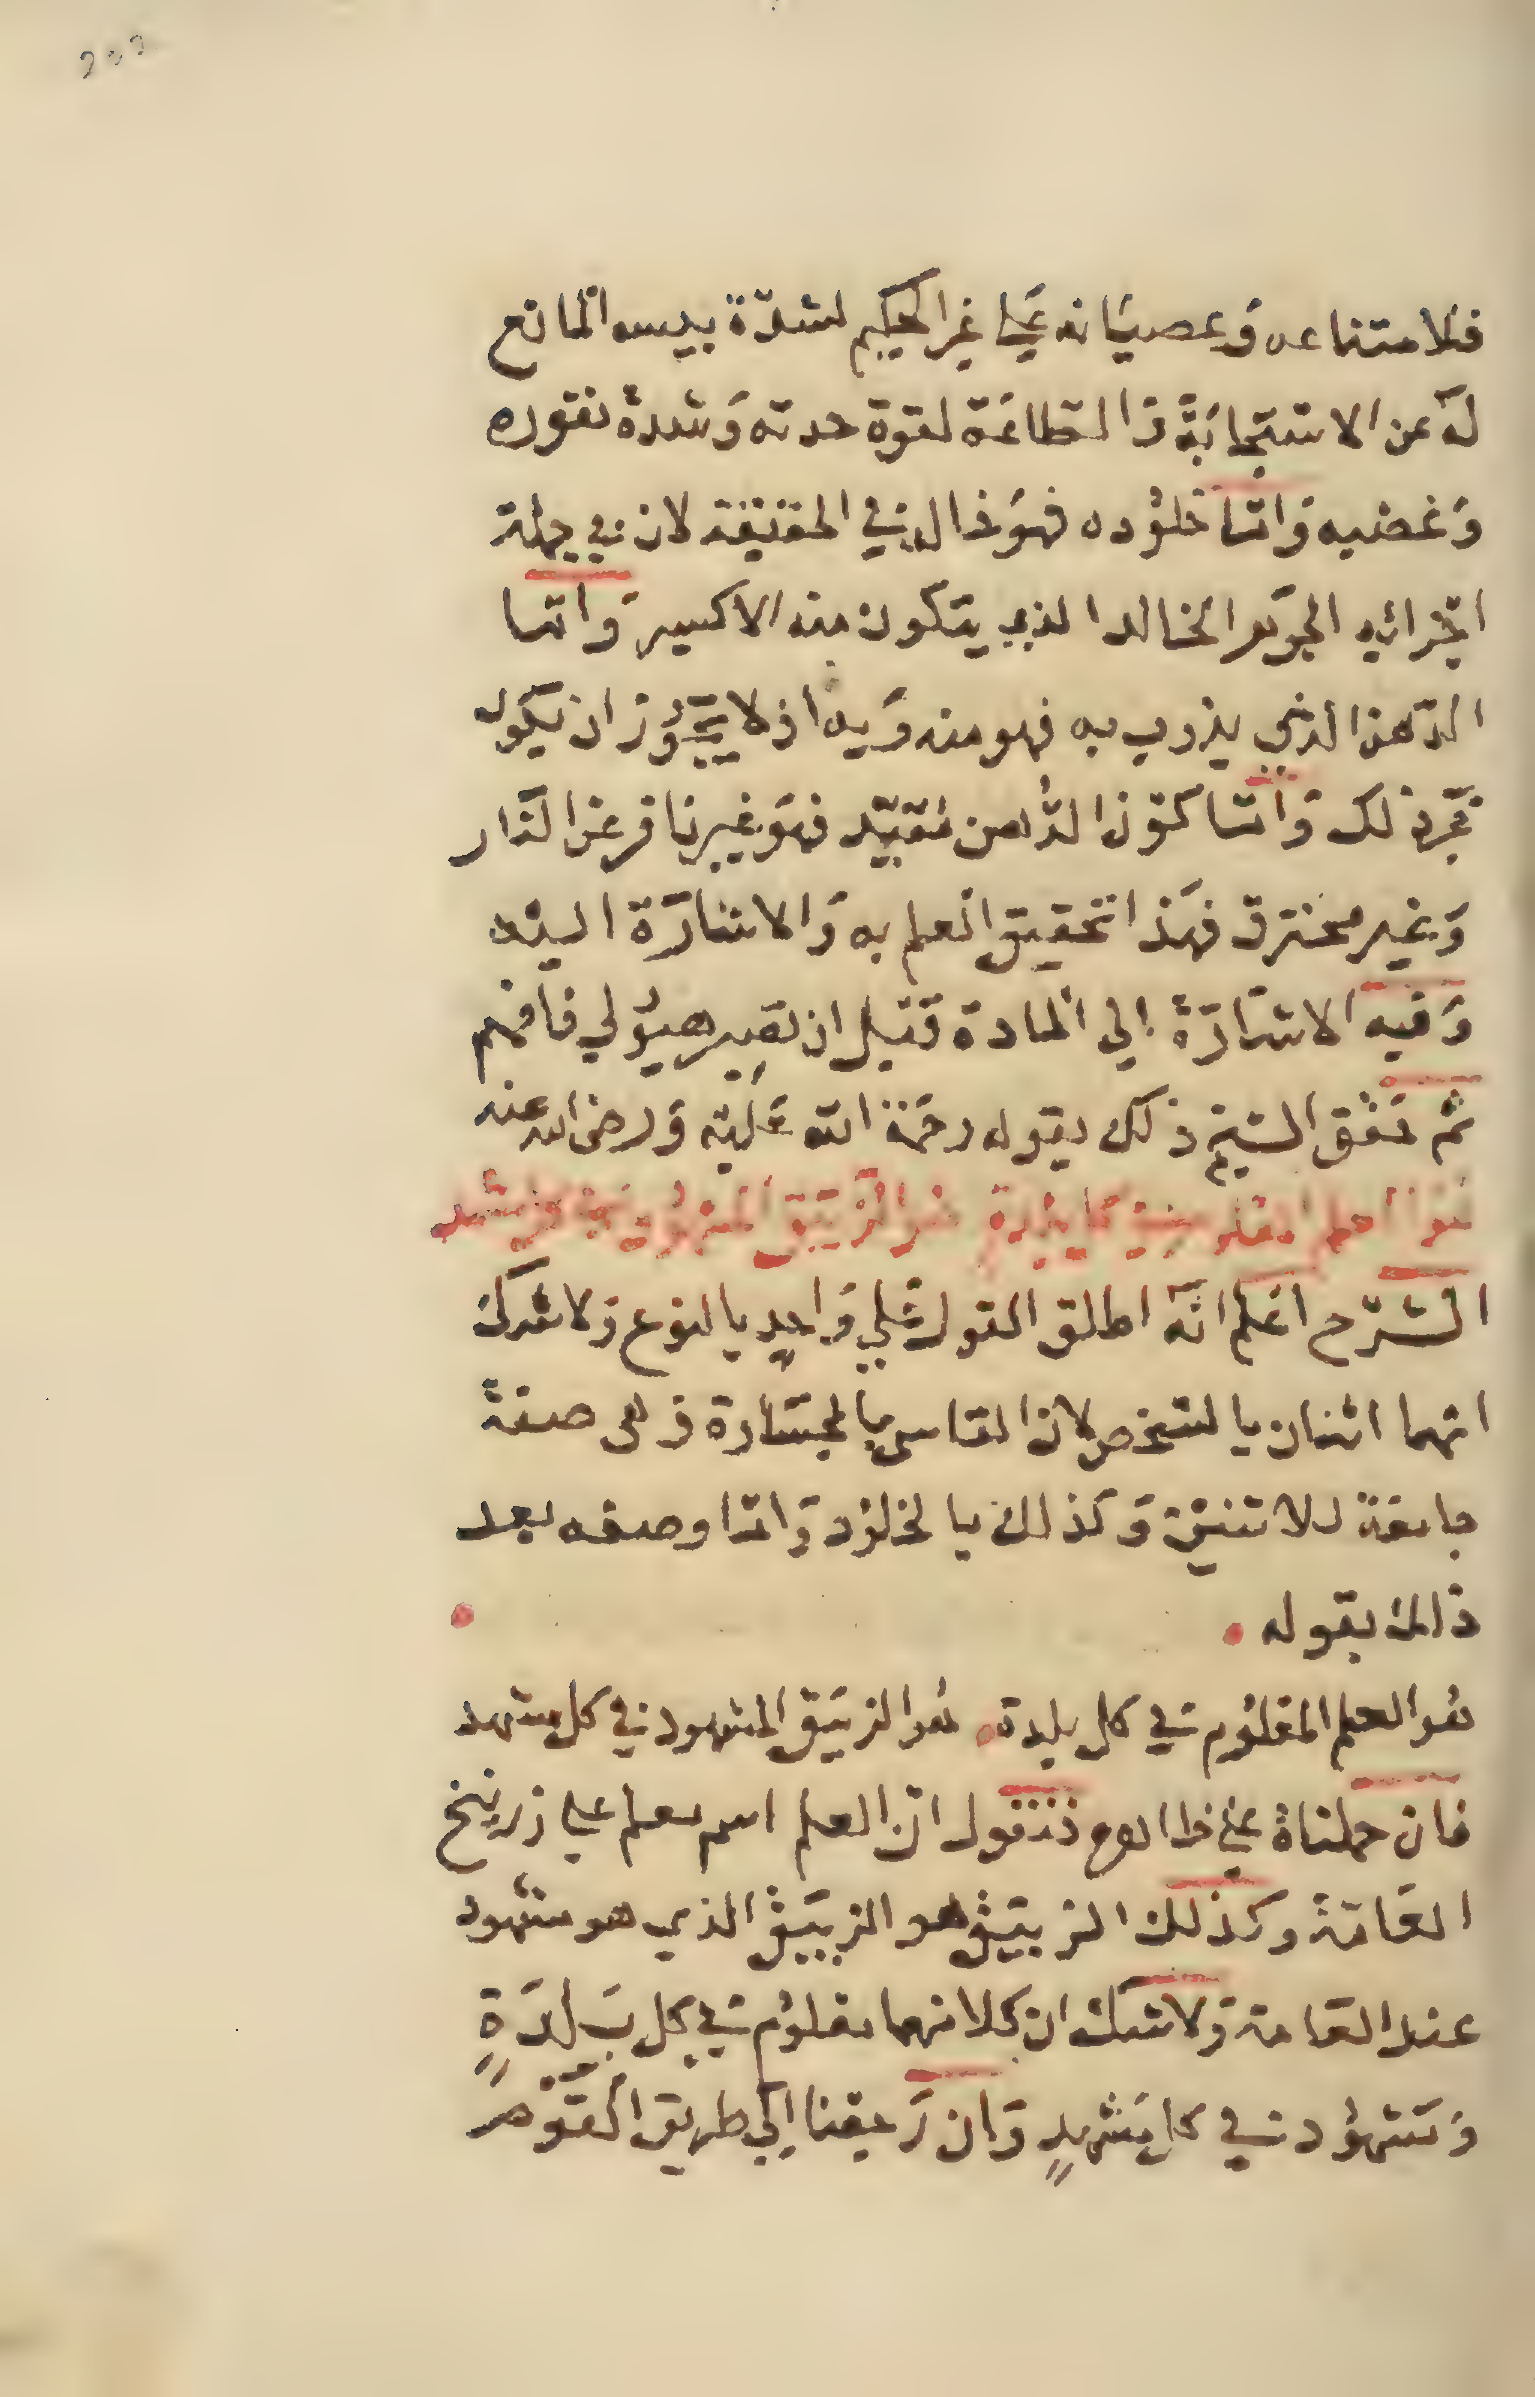 فلامتناعه وعصيانه على غير الحكيم لشدّة يبسه المانع
له عن الاستجابة والطاعة لقوة حدته وشدة نفوره
وغضبه وامّا خلوده فهو خالد في الحقيقة لان في جملة
اجزائه الجوهر الخالد الذي يتكون منه الاكسير وامّا
الدّهن الذي يذوب به فهو منه وبه اذ لا يجوز ان يكون
غير ذلك وامّا كون الدّهن مقيّد فهو غير نافر عن النار
وغير محترق فهذا تحقيق العلم به والاشارة اليه
وفيه الاشارة الى المادة قبل ان تصير هيولي فافهم
ثم حقق الشيخ ذلك بقوله رحمة الله عليه ورضى الله عنه
هو العلم المعلوم في كل بلدة هو الزيبق المشهود في كل مشهد
الشرح اعلم انّه اطلق القول على واحدٍ بالنوع ولا شك
انهما اثنان بالشخص لان القاسي بالجسارة وهي صفة
جامعة للاثنين وكذلك بالخلود وامّا وصفه بعد
ذالك بقوله
هو العلم المعلوم في كل بلدة هو الزيبق المشهود في كل مشهد
فان حملناه على فنقول انّ العلم اسم يعلم على زرنيخ
العامّة وكذلك الزيبق هو الزيبق الذي هو مشهود
عند العامة ولا شك ان كلا منهما معلوم في كل بلدةٍ
ومشهود في كل مشهدٍ وان رجعنا الى طريق القوم